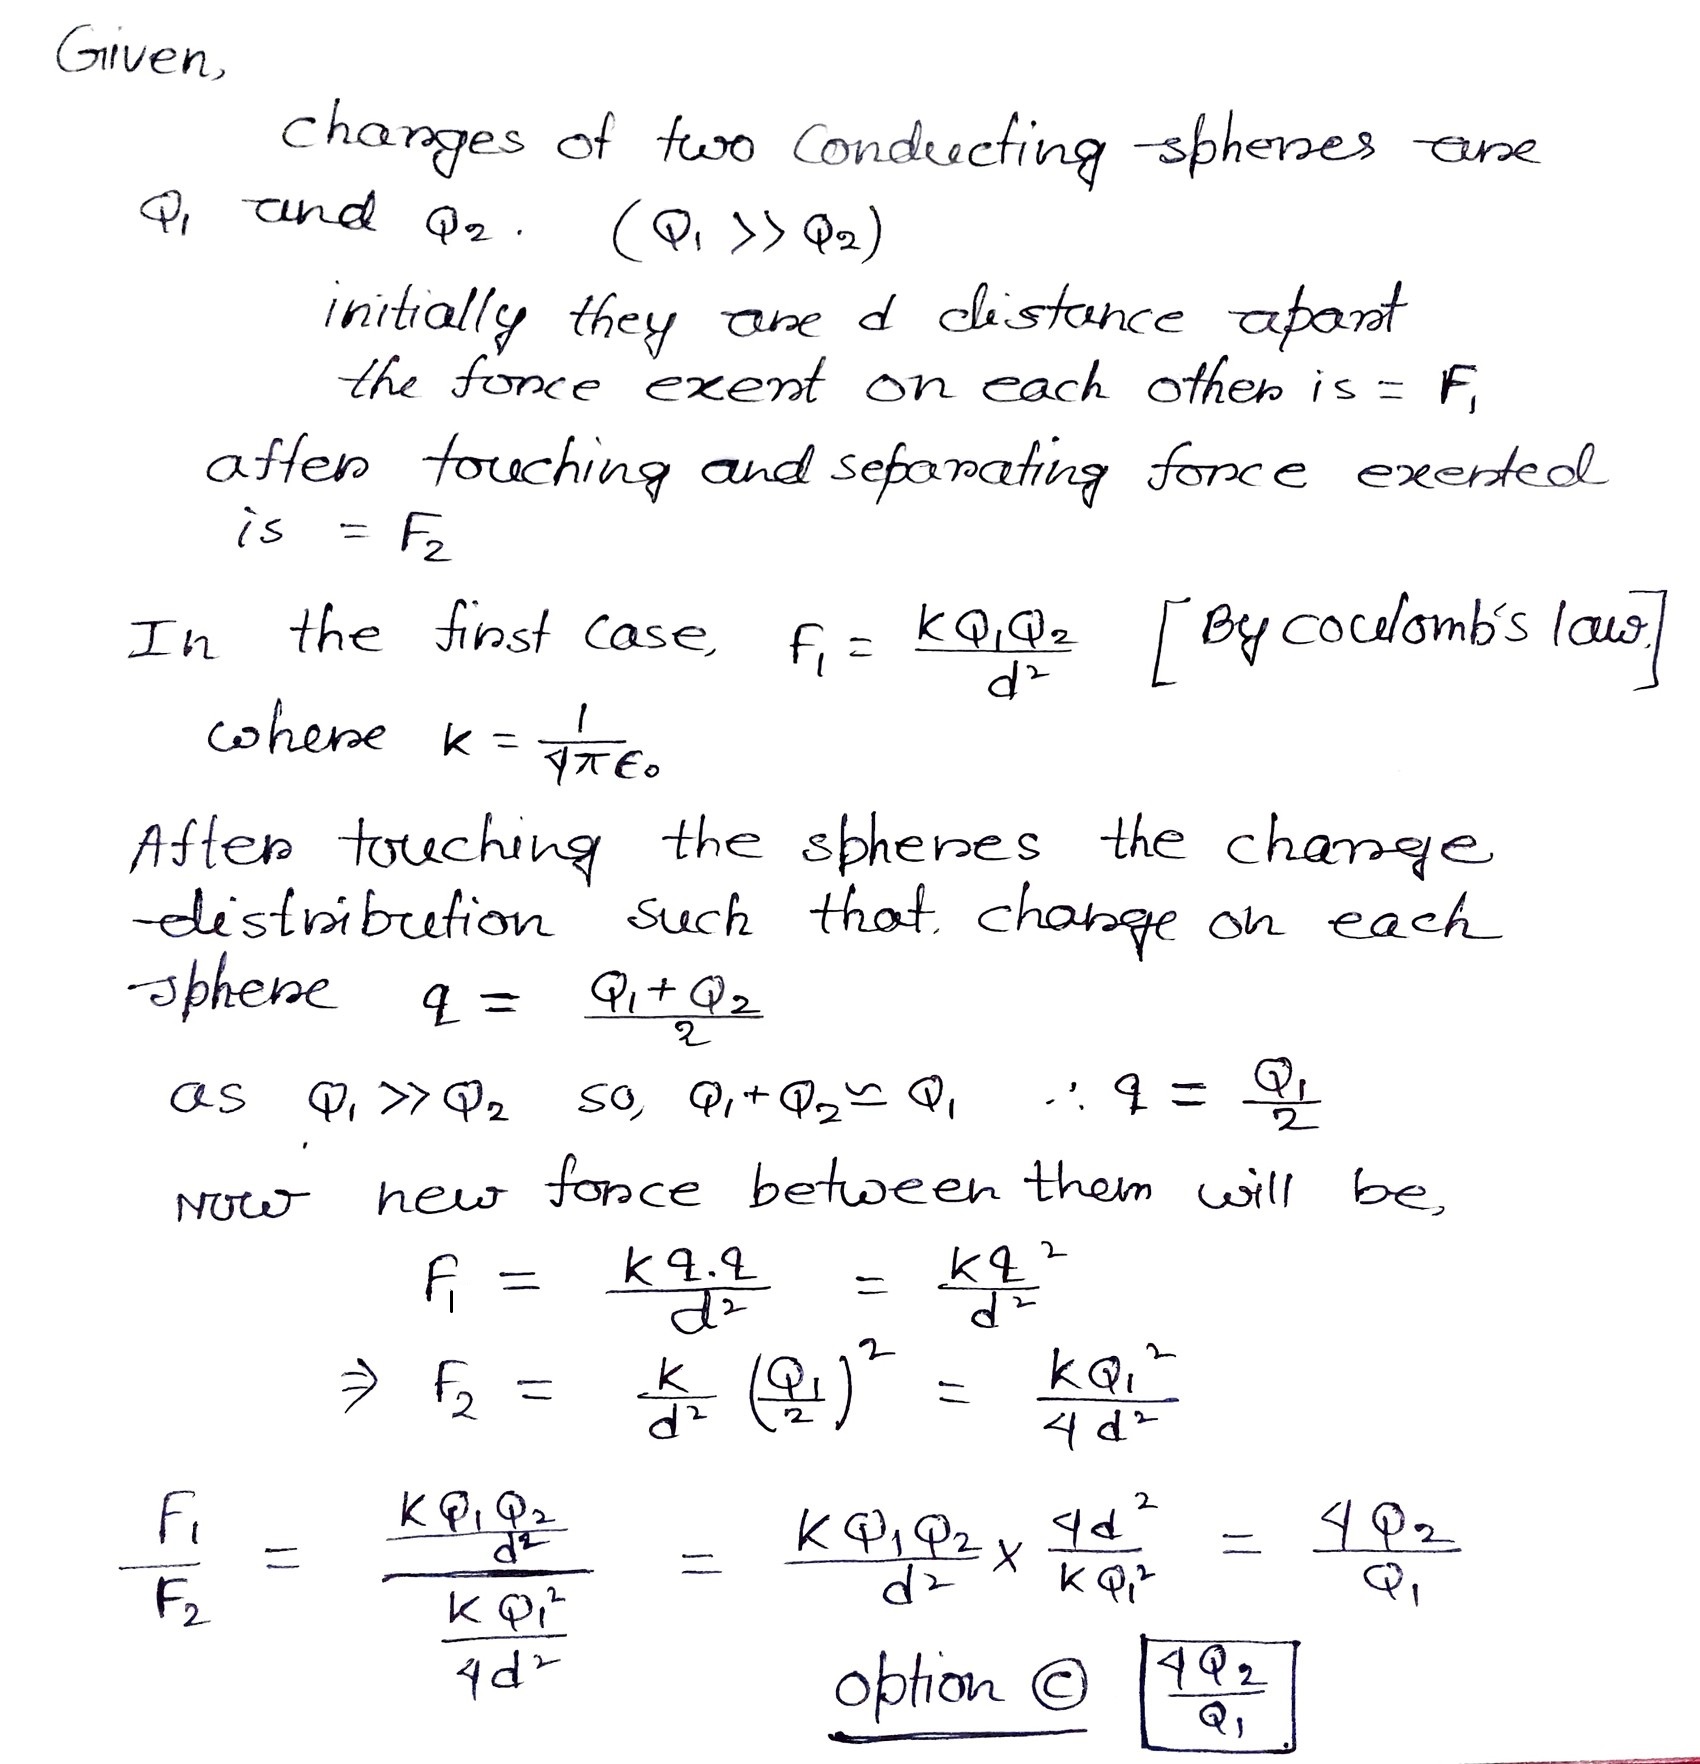 Given,
charges of two conducting spheres are
Q₁ and Q₂. (Q₁ >> Q₂)
initially they are d distance apart
the force exert on each other is = F₁
after touching and separating force exerted
is = F₂
In the first case, F₁ = KQ₁Q₂/d² [By coulomb's law.]
where K = 1/4πϵ₀
After touching the spheres the charge
distribution such that. charge on each
sphere q = (Q₁+Q₂)/2
as Q₁ >> Q₂ so, Q₁+Q₂ ≃ Q₁ ∴ q = Q₁/2
Now new force between them will be,
F₁ = K q.q/d² = Kq²/d²
⇒ F₂ = K/d² (Q₁/2)² = KQ₁²/4d²
F₁/F₂ = (KQ₁Q₂/d²)/(KQ₁²/4d²) = KQ₁Q₂/d² × 4d²/KQ₁² = 4Q₂/Q₁
option ⓒ 4Q₂/Q₁